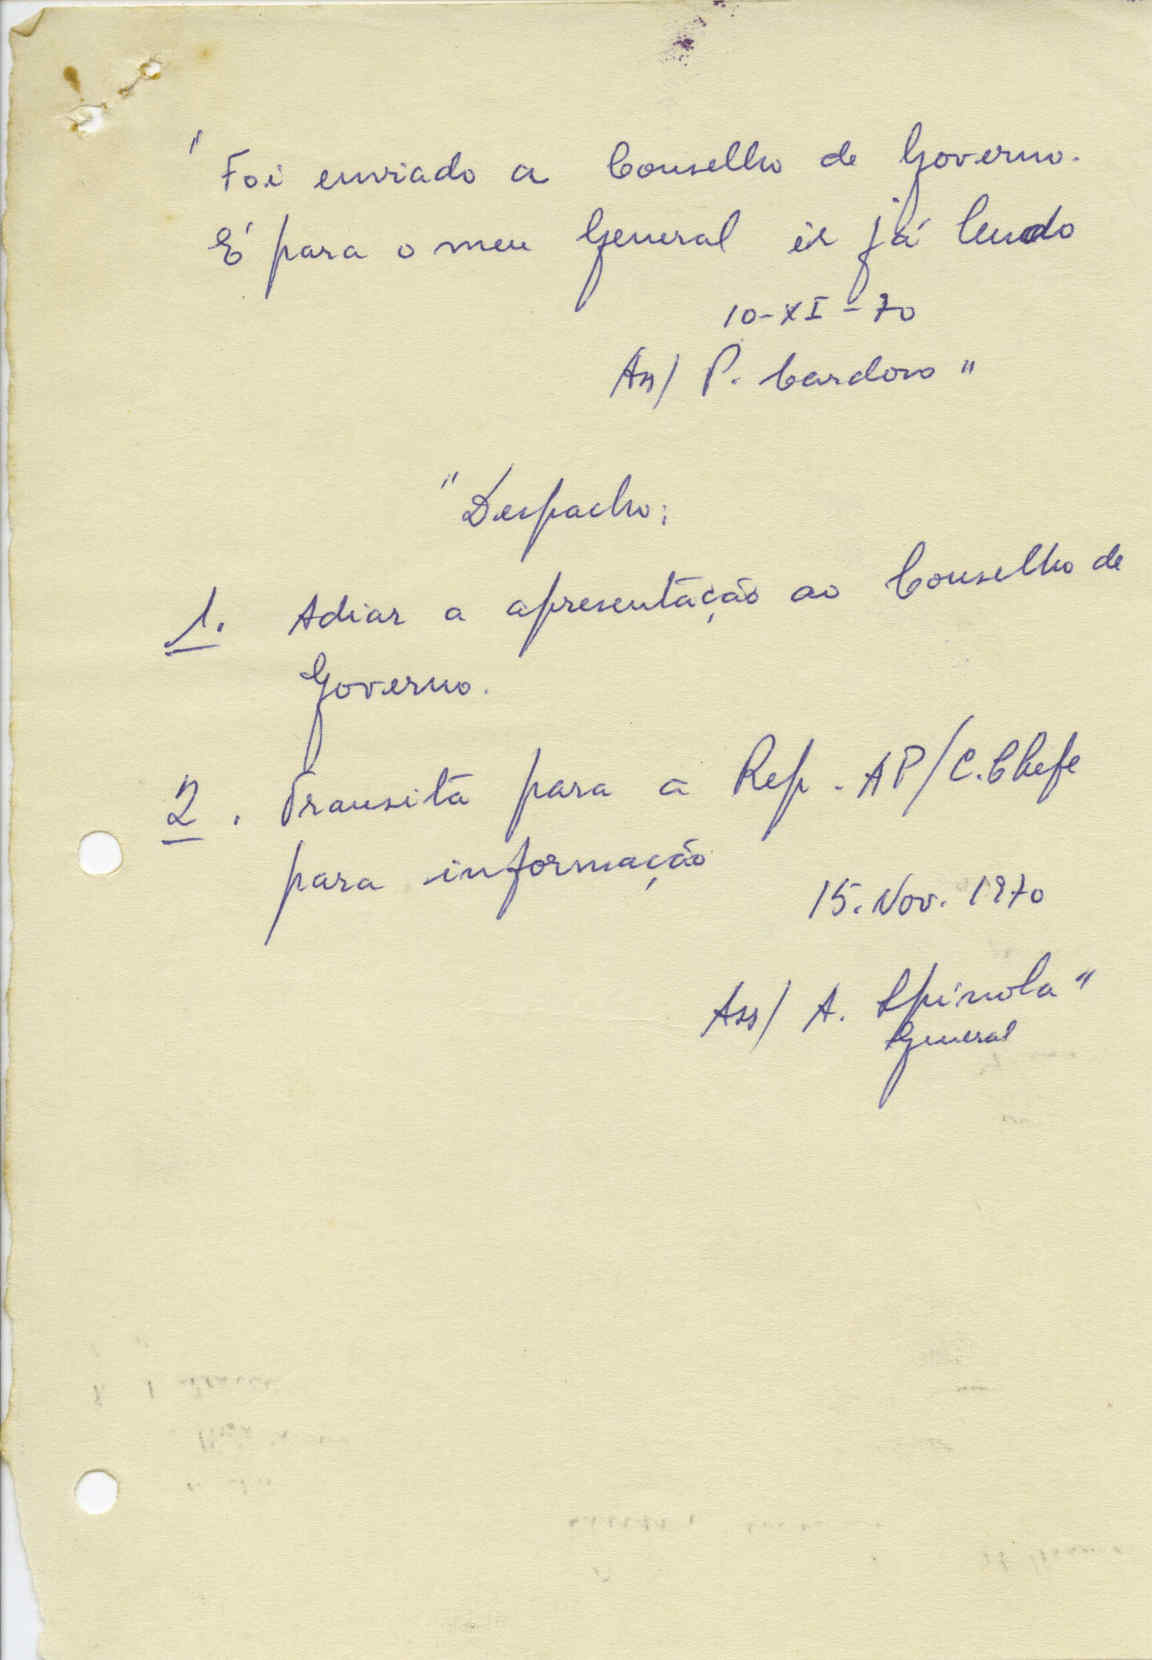 " Foi enviado a Conselho de Governo.
É para o meu General ir já lendo
10-XI-70
Ass/ P. Cardoso "
" Despacho:
1. Adiar a apresentação ao Conselho de
Governo.
2. Transita para a Rep. AP/C.Chefe
para informação
15. Nov. 1970
Ass/ A. Spínola "
General